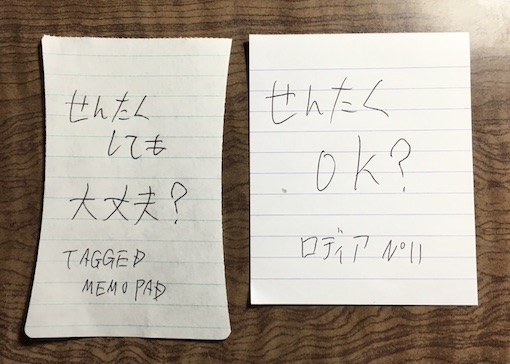 せんたく
しても
大丈夫?
TAGGED
MEMO PAD
せんたく
OK?
ロディア Nº11